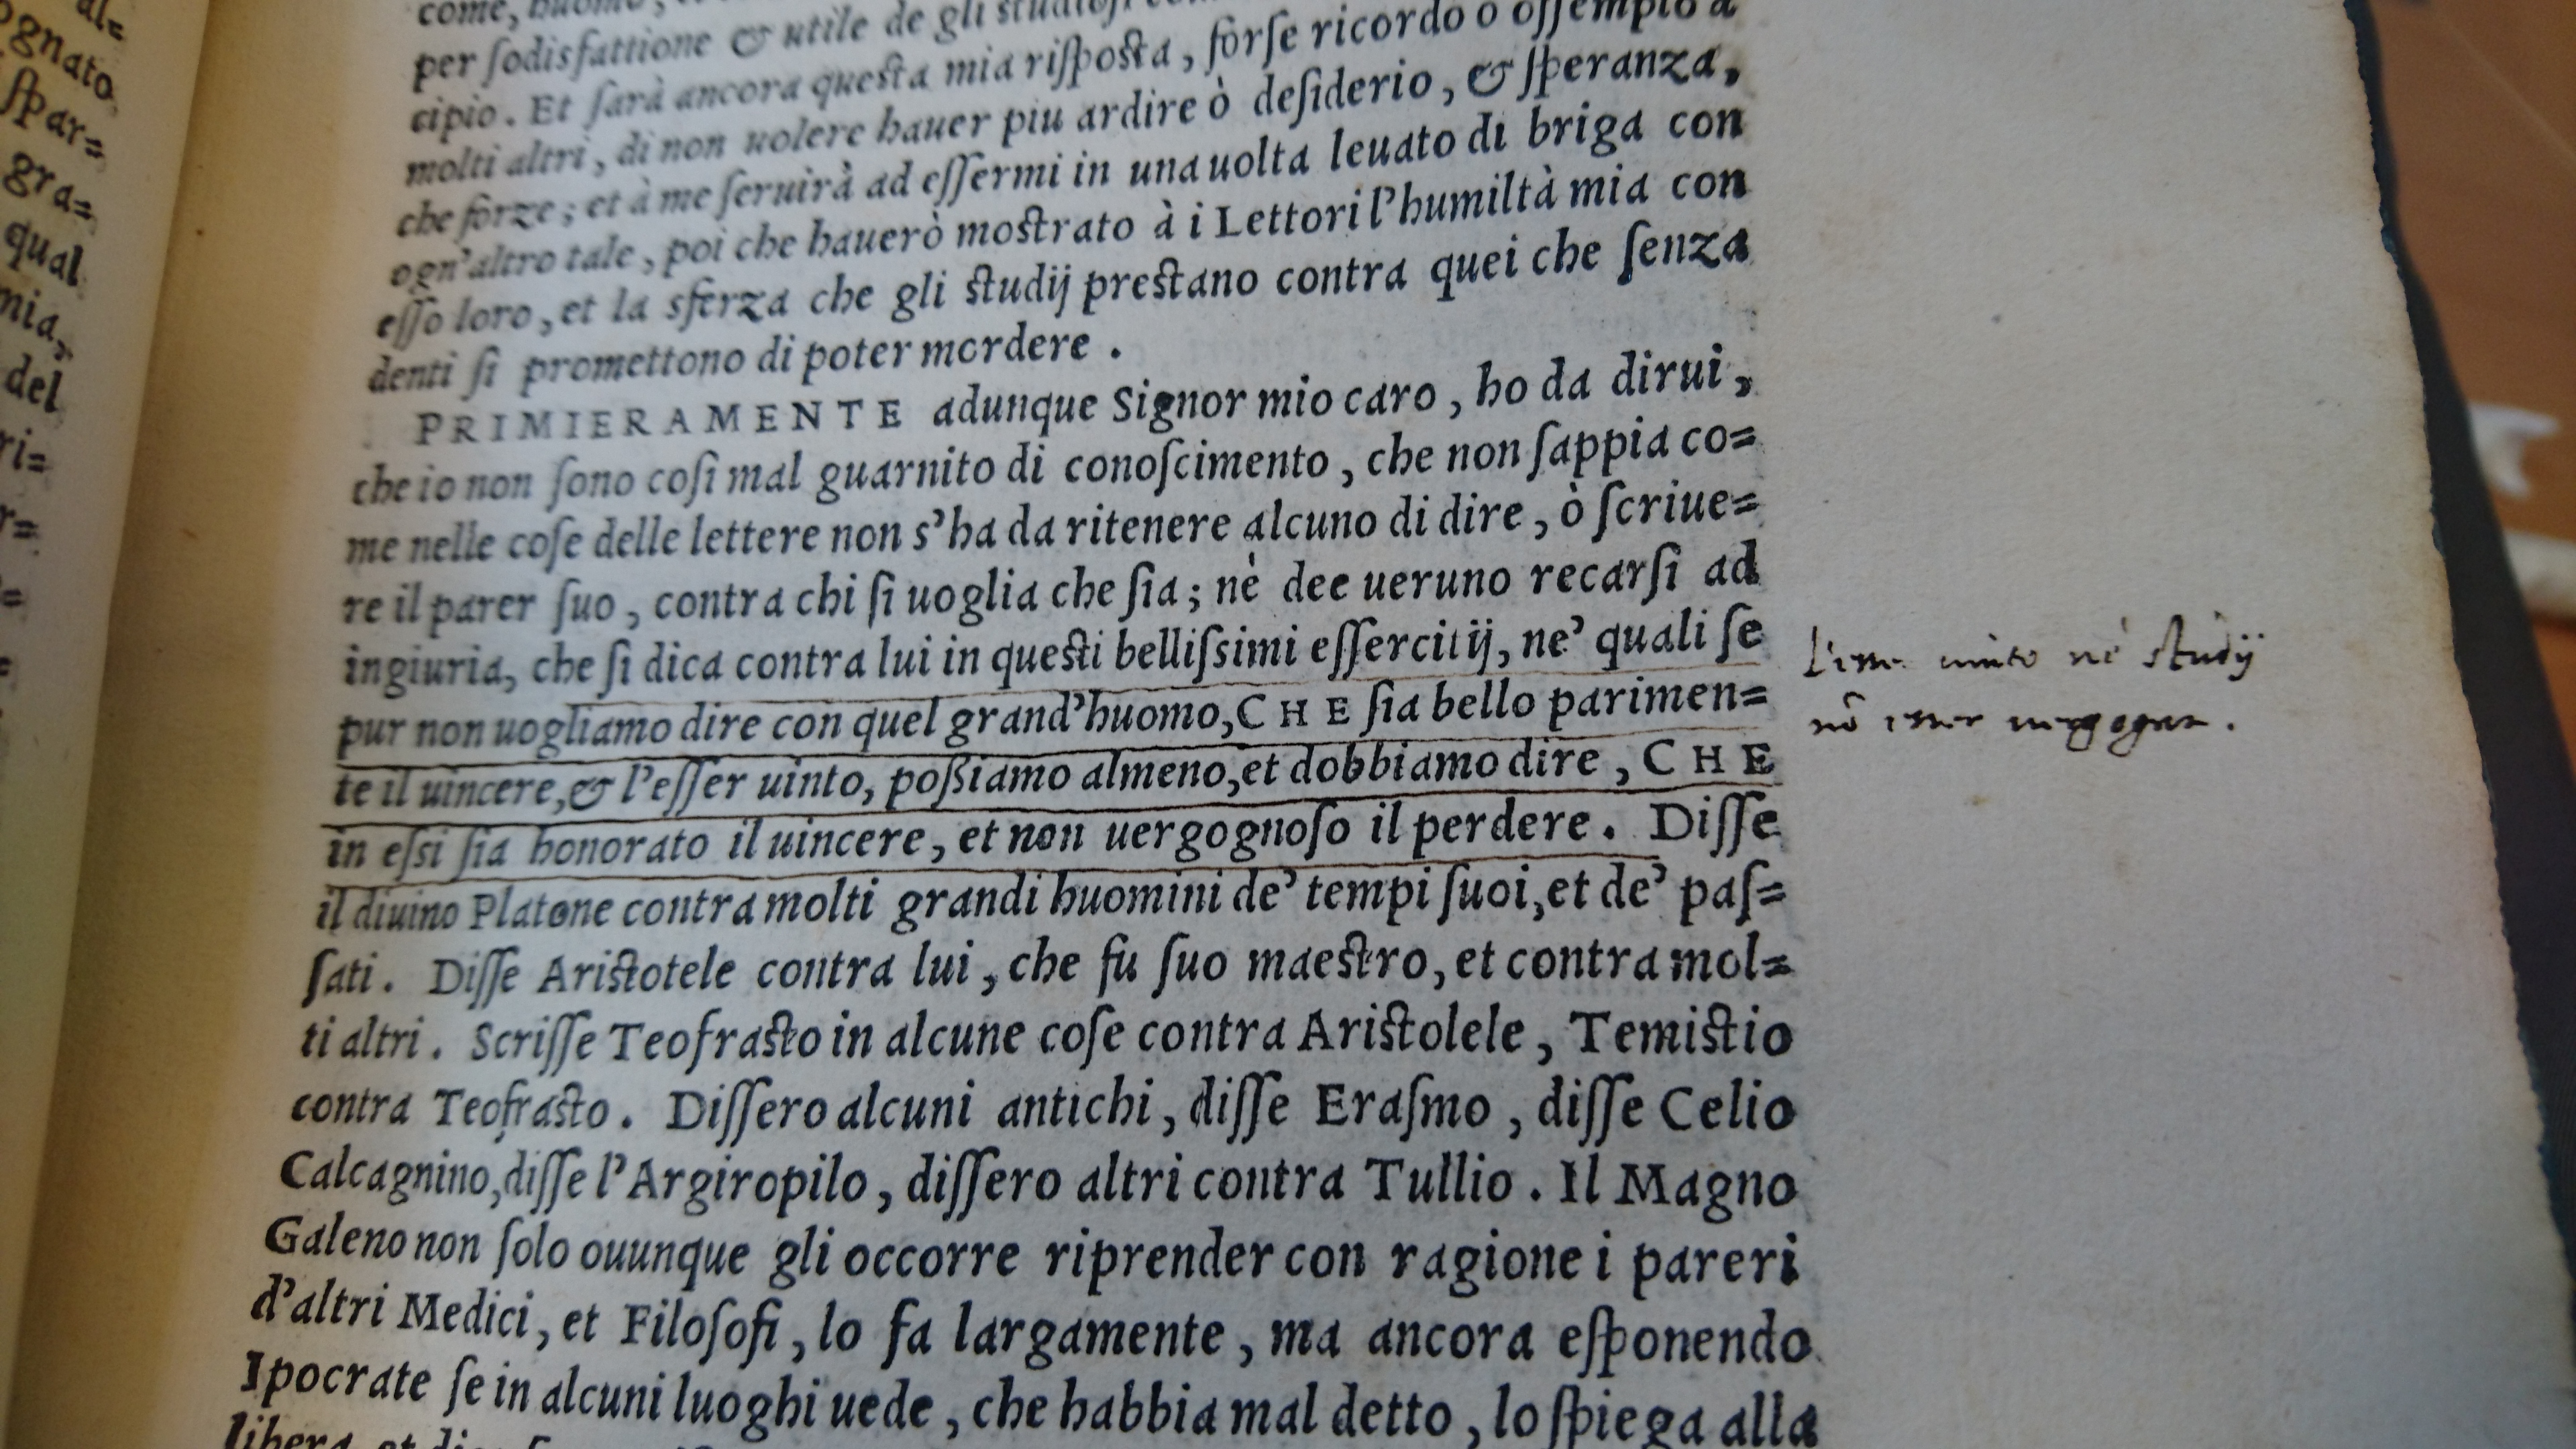 al=
ognato
ſpar=
gra=
qual
mia,
del
ri=
r=
=
=
come, huomo,
per ſodisfattione & utile de gli studioſi
cipio. Et ſarà ancora questa mia riſposta, forſe ricordo o eſſempio a
molti altri, di non uolere hauer piu ardire ò deſiderio, & ſperanza,
che forze; et à me ſeruirà ad eſſermi in una uolta leuato di briga con
ogn'altro tale, poi che hauerò mostrato à i Lettori l'humiltà mia con
eſſo loro, et la sferza che gli studij prestano contra quei che ſenza
denti ſi promettono di poter mordere.
PRIMIERAMENTE adunque Signor mio caro, ho da dirui,
che io non ſono coſi mal guarnito di conoſcimento, che non ſappia co=
me nelle coſe delle lettere non s'ha da ritenere alcuno di dire, ò ſcriue=
re il parer ſuo, contra chi ſi uoglia che ſia; nè dee ueruno recarſi ad
ingiuria, che ſi dica contra lui in questi belliſsimi eſſercitij, ne' quali ſe
pur non uogliamo dire con quel grand'huomo, CHE ſia bello parimen=
te il uincere, & l'eſſer uinto, poßiamo almeno, et dobbiamo dire, CHE
in eſsi ſia honorato il uincere, et non uergognoſo il perdere. Diſſe
il diuino Platone contra molti grandi huomini de' tempi ſuoi, et de' paſ=
ſati. Diſſe Aristotele contra lui, che fu ſuo maestro, et contra mol=
ti altri. Scriſſe Teofrasto in alcune coſe contra Aristolele, Temistio
contra Teofrasto. Diſſero alcuni antichi, diſſe Eraſmo, diſſe Celio
Calcagnino, diſſe l'Argiropilo, diſſero altri contra Tullio. Il Magno
Galeno non ſolo ouunque gli occorre riprender con ragione i pareri
d'altri Medici, et Filoſofi, lo fa largamente, ma ancora eſponendo
Ipocrate ſe in alcuni luoghi uede, che habbia mal detto, lo ſpiega alla
libera, et
uinto nè studij
nõ esser